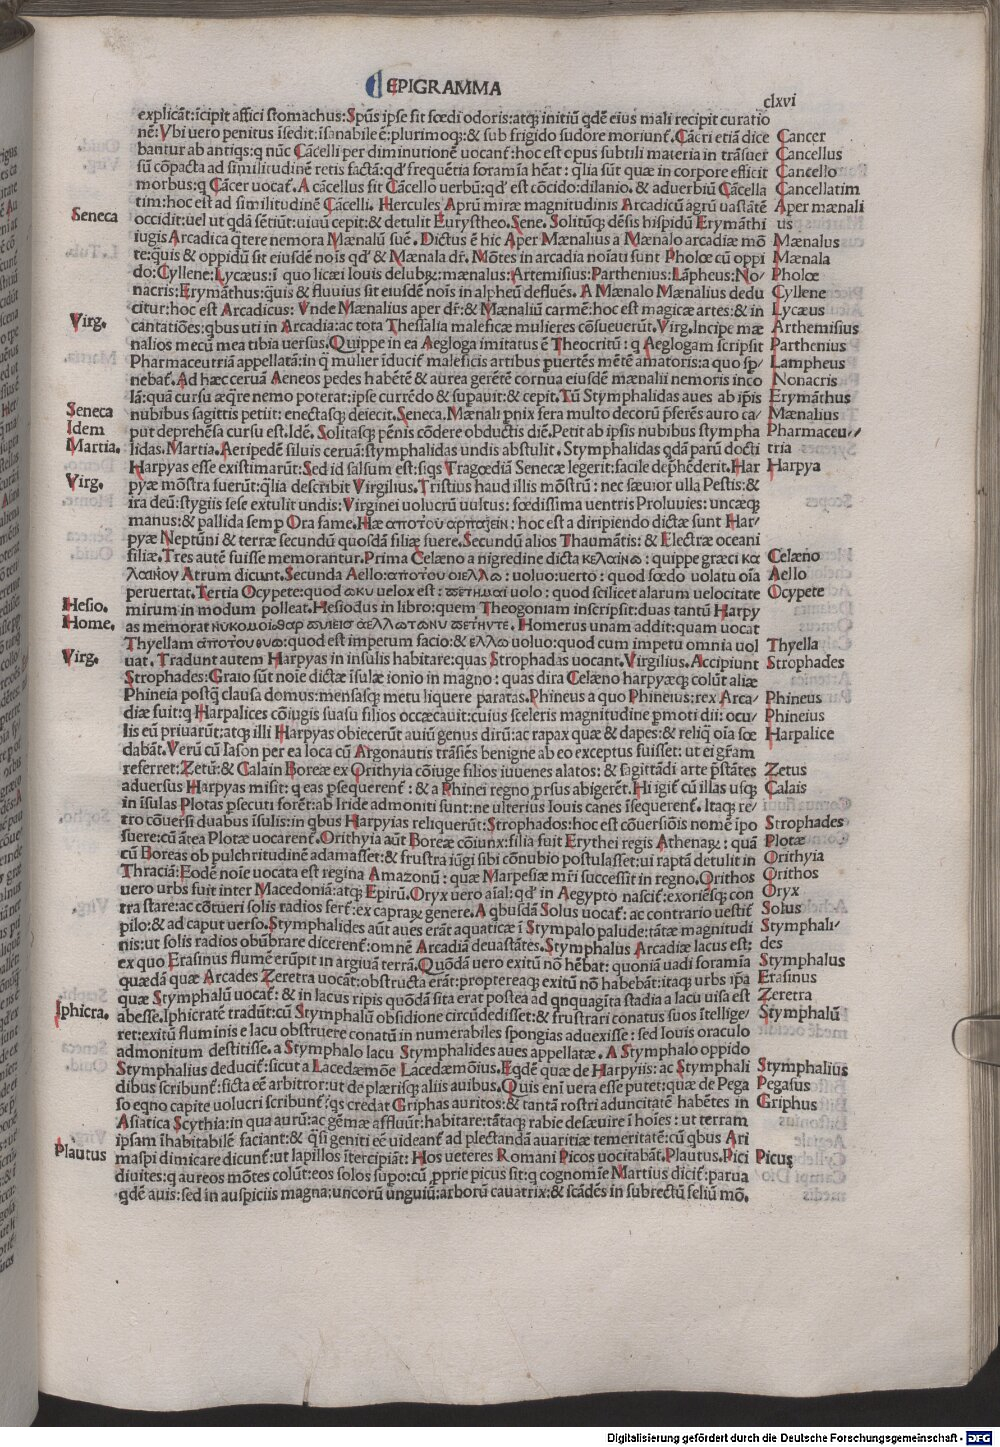 EPIGRAMMA
clxvi
explicāt:īcipit affici stomachus:Spūs ipse sit fœdi odoris:atq; initiū qdē eius mali recipit curatio
nē:Vbi uero penitus īsedit:īsanabile ē:plurimoq;:& sub frigido sudore moriunt̄.Cācri etiā dice
bantur ab antiqs:q nūc Cācelli per diminutionē uocant̄:hoc est opus subtili materia in trāsuer
sū cōpacta ad similitudinē retis facta:qd' frequētia foramīa hēat:qlia sūt quæ in corpore efficit
morbus:q Cācer uocat̄.A cācellus fit Cācello uerbū:qd' est cōcido:dilanio.& aduerbiū Cācella
tim:hoc est ad similitudinē Cācelli. Hercules Aprū miræ magnitudinis Arcadicū agrū uastātē
occidit:uel ut qdā sētiūt:uiuū cepit:& detulit Eurystheo.Sene. Solitūq; dēsis hispidū Erymāthi
iugis Arcadica qtere nemora Mænalū suē. Dictus ē hic Aper Mænalius a Mænalo arcadiæ mō
te:quis & oppidū sit eiusdē noīs qd' & Mænala dr̄. Mōtes in arcadia noīati sunt Pholœ cū oppi
do:Cyllene:Lycæus:ī quo licæi Iouis delubꝝ:mænalus:Artemisius:Parthenius:Lāpheus:No/
nacris:Erymāthus:quis & fluuius sit eiusdē noīs in alpheū defluēs. A Mænalo Mænalius dedu
citur:hoc est Arcadicus: Vnde Mænalius aper dr̄:& Mænaliū carmē:hoc est magicæ artes:& in
cantatiōes:qbus uti in Arcadia:ac tota Thessalia maleficæ mulieres cōsueuerūt.Virg.Incipe mæ
nalios mecū mea tibia uersus.Quippe in ea Aegloga imitatus ē Theocritū: q Aeglogam scripsit
Pharmaceutriā appellatā:in q mulier īducit̄ maleficis artibus puertēs mētē amatoris:a quo sp/
nebat̄.Ad hæc ceruā Aeneos pedes habētē & aurea gerētē cornua eiusdē mænalii nemoris inco
lā:quā cursu æqre nemo poterat:ipse currēdo & supauit:& cepit. Tū Stymphalidas aues ab ipīs
nubibus sagittis petiit: enectasq; deiecit.Seneca.Mænali pnix fera multo decorū pferēs auro ca/
put deprehēsa cursu est.Idē. Solitasq; pēnis cōdere obductis diē.Petit ab ipsis nubibus stympha
lidas.Martia.Aeripedē siluis ceruā:stymphalidas undis abstulit. Stymphalidas qdā parū docti
Harpyas esse existimarūt:Sed id falsum est:siqs Tragœdiā Senecæ legerit:facile dephēderit.Har
pyæ mōstra fuerūt:qlia describit Virgilius.Tristius haud illis mōstrū: nec sæuior ulla Pestis:&
ira deū:stygiis sese extulit undis:Virginei uolucrū uultus: fœdissima uentris Proluuies:uncæq;
manus:& pallida semp Ora fame.Hæ αποτου αρπαζειν: hoc est a diripiendo dictæ sunt Har/
pyæ Neptūni & terræ secundū quosdā filiæ fuere.Secundū alios Thaumātis:& Electræ oceani
filiæ.Tres autē fuisse memorantur.Prima Celæno a nigredine dicta κελαινω: quippe græci κα
λαινον Atrum dicunt.Secunda Aello:αποτου οιελλω: uoluo:uerto: quod fœdo uolatu oīa
peruertat.Tertia Ocypete:quod ωκυ uelox est: πετημαι uolo: quod scilicet alarum uelocitate
mirum in modum polleat.Hesiodus in libro:quem Theogoniam inscripsit:duas tantū Harpy
Thyellam αποτου θυω:quod est impetum facio:& ελλω uoluo:quod cum impetu omnia uol
uat. Tradunt autem Harpyas in insulis habitare:quas Strophadas uocant.Virgilius.Accipiunt
Strophades:Graio sūt noīe dictæ īsulæ ionio in magno: quas dira Celæno harpyæq; colūt aliæ
Phineia postq clausa domus:mensasq; metu liquere paratas.Phineus a quo Phineius:rex Arca/
diæ fuit:q Harpalices cōiugis suasu filios occæcauit:cuius sceleris magnitudine pmoti dii: ocu/
lis eū priuarūt:atq; illi Harpyas obiecerūt auiū genus dirū:ac rapax quæ & dapes:& reliq oīa fœ
dabāt.Verū cū Iason per ea loca cū Argonautis trāsiēs benigne ab eo exceptus fuisset: ut ei gr̄am
referret:Zetū:& Calain Boreæ ex Orithyia cōiuge filios iuuenes alatos: & sagittādi arte pstātes
aduersus Harpyas misit: q eas psequerent̄: & a Phinei regno prsus abigerēt.Hi igit̄ cū illas usq;
in īsulas Plotas psecuti forēt:ab Iride admoniti sunt:ne ulterius Iouis canes īsequerent̄.Itaq; re/
tro cōuersi duabus īsulis:in qbus Harpyias reliquerūt:Strophados:hoc est cōuersiōis nomē īpo
suere:cū āntea Plotæ uocarent̄.Orithyia aūt Boreæ cōiunx:filia fuit Erythei regis Athenaꝝ: quā
cū Boreas ob pulchritudinē adamasset:& frustra iūgi sibi cōnubio postulasset:ui raptā detulit in
Thraciā:Eodē noīe uocata est regina Amazonū: quæ Marpesiæ mr̄i successit in regno.Orithos
uero urbs fuit inter Macedoniā:atq; Epirū.Oryx uero aīal:qd' in Aegypto nascit̄:exoriēsq; con
tra stare:ac cōtueri solis radios fert̄:ex capraꝝ genere.A qbusdā Solus uocat̄: ac contrario uestit̄
pilo:& ad caput uerso.Stymphalides aūt aues erāt aquaticæ ī Stympalo palude:tātæ magnitudi
nis:ut solis radios obūbrare dicerent̄:omnē Arcadiā deuastātes.Stymphalus Arcadiæ lacus est:
ex quo Erasinus flumē erūpit in argiuā terrā.Quōdā uero exitū nō hēbat: quoniā uadi foramīa
quædā quæ Arcades Zeretra uocāt:obstructa erāt:proptereaq; exitū nō habebāt:itaq; urbs ip̄a
quæ Stymphalū uocat̄: & in lacus ripis quōdā sita erat postea ad qnquagīta stadia a lacu uisa est
abesse.Iphicratē tradūt:cū Stymphalū obsidione circūdedisset:& frustrari conatus suos ītellige/
ret:exitū fluminis e lacu obstruere conatū in numerabiles spongias aduexisse: sed Iouis oraculo
admonitum destitisse.a Stymphalo lacu Stymphalides aues appellatæ. A Stymphalo oppido
Stymphalius deducit̄:sicut a Lacedæmōe Lacedæmōius.Eqdē quæ de Harpyiis: ac Stymphali
dibus scribunt̄:ficta eē arbitror:ut de plærisq; aliis auibus.Quis enī uera esse putet:quæ de Pega
so eqno capite uolucri scribunt̄:qs credat Griphas auritos:& tantā rostri aduncitatē habētes in
Asiatica Scythia:in qua aurū:ac gēmæ affluūt:habitare:tātaq; rabie desæuire ī hoīes: ut terram
ipsam īhabitabilē faciant:& qsi geniti eē uideant̄ ad plectandā auaritiæ temeritatē:cū qbus Ari
maspi dimicare dicunt̄:ut lapillos ītercipiāt: Hos ueteres Romani Picos uocitabāt.Plautus.Pici
diuites:q aureos mōtes colūt:eos solos supo:cū prie picus sit:q cognomīe Martius dicit̄:parua
qdē auis:sed in auspiciis magna:uncorū unguiū:arborū cauatrix:& scādēs in subrectū feliū mō.
Seneca
Virg.
Seneca
Idem
Martia.
Virg.
Hesio.
Home.
Virg.
Iphicra.
Plautus
Cancer
Cancellus
Cancello
Cancellatim
Aper mænali
us
Mænalus
Mænala
Pholœ
Cyllene
Lycæus
Arthemisius
Parthenius
Lampheus
Nonacris
Erymāthus
Mænalius
Pharmaceu//
tria
Harpya
Celæno
Aello
Ocypete
Thyella
Strophades
Phineus
Phineius
Harpalice
Zetus
Calais
Strophades
Plotæ
Orithyia
Orithos
Oryx
Solus
Stymphali/
des
Stymphalus
Erasinus
Zeretra
Stymphalū
Stymphalius
Pegasus
Griphus
Picus
Digitalisierung gefördert durch die Deutsche Forschungsgemeinschaft - DFG